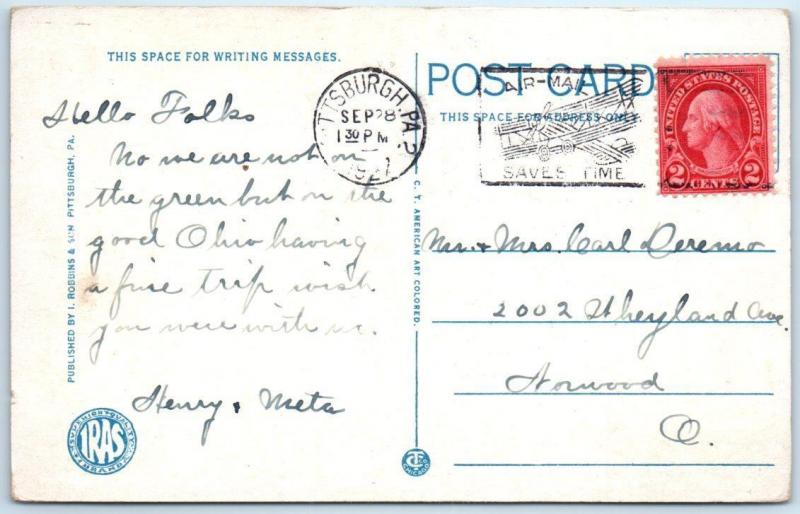 THIS SPACE FOR WRITING MESSAGES.
Hello Folks
No we are not on
the green but on the
good Ohio having
a fine trip wish
you were with us.
Henry & Meta
PUBLISHED BY I. ROBBINS & SON PITTSBURGH, PA.
IRAS
C. T. AMERICAN ART COLORED.
CHICAGO
POST CARD
THIS SPACE FOR ADDRESS ONLY.
PITTSBURGH, PA.
SEP 28
1 30 PM
1927
AIR-MAIL
SAVES TIME
UNITED STATES POSTAGE
2 CENTS 2
Mr. & Mrs. Carl Deremo
2002 Weyland Ave.
Norwood
O.